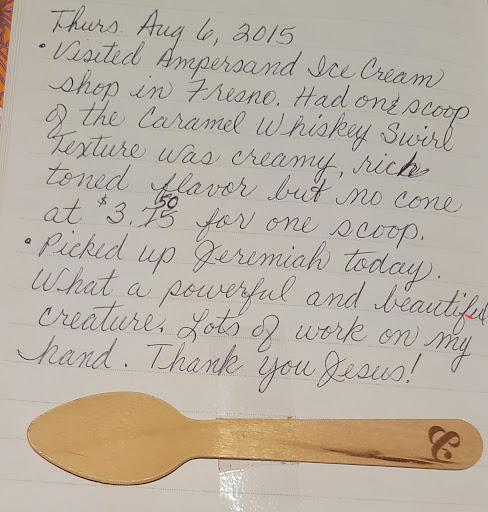 Thurs. Aug 6, 2015
• Visited Ampersand Ice Cream
shop in Fresno. Had one scoop
of the Caramel Whiskey Swirl
Texture was creamy, rich
toned flavor but no cone
at $3.50 for one scoop.
• Picked up Jeremiah today.
What a powerful and beautiful
creature. Lots of work on my
hand. Thank you Jesus!
&